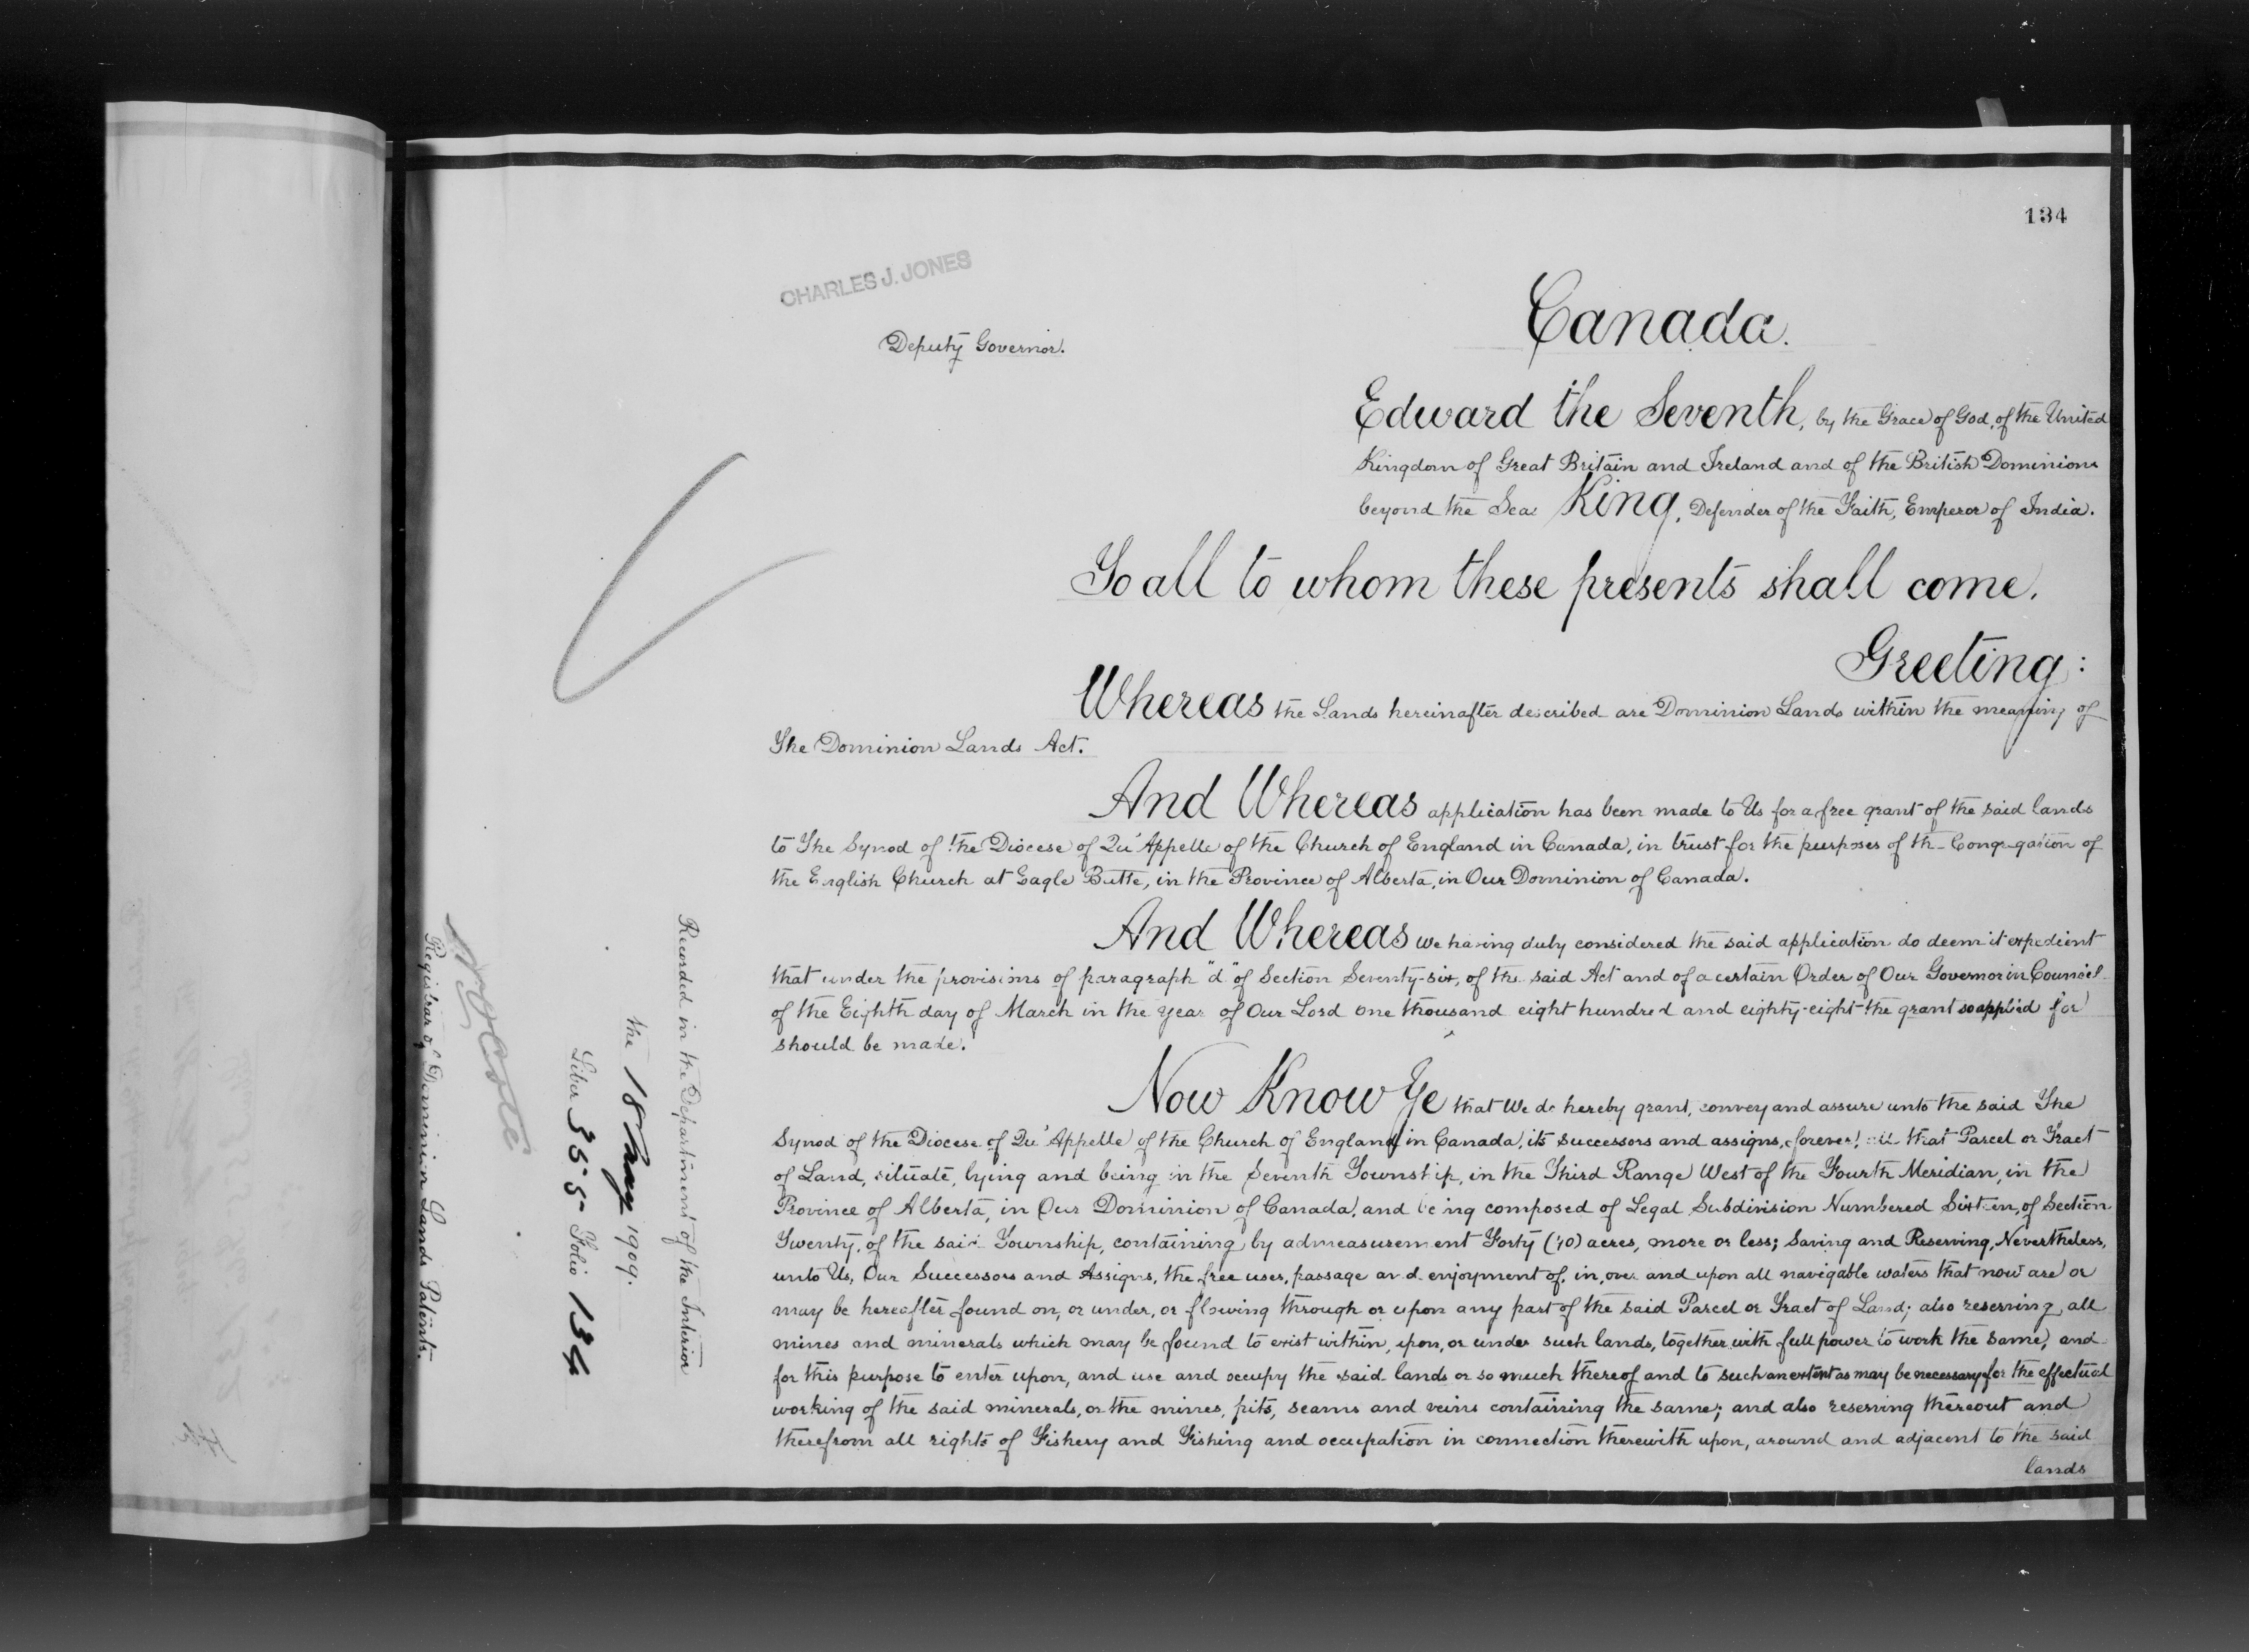 134
CHARLES J. JONES
Deputy Governor.
Canada.
Edward the Seventh, by the Grace of God, of the United
Kingdom of Great Britain and Ireland and of the British Dominions
beyond the Seas King, Defender of the Faith, Emperor of India.
To all to whom these presents shall come.
Greeting:
Whereas the Lands hereinafter described are Dominion Lands within the meaning of
The Dominion Lands Act.
And Whereas application has been made to Us for a free grant of the said lands
to The Synod of the Diocese of Qu'Appelle of the Church of England in Canada, in trust for the purposes of the Congregation of
the English Church at Eagle Butte, in the Province of Alberta, in Our Dominion of Canada.
And Whereas we having duly considered the said application do deem it expedient
that under the provisions of paragraph "d" of Section Seventy-six, of the said Act and of a certain Order of Our Governor in Council
of the Eighth day of March in the year of Our Lord one thousand eight hundred and eighty-eight the grant so applied for
should be made.
Now Know Ye that We do hereby grant, convey and assure unto the said The
Synod of the Diocese of Qu'Appelle of the Church of England in Canada, its successors and assigns, forever, all that Parcel or Tract
of Land, situate, lying and being in the Seventh Township, in the Third Range West of the Fourth Meridian, in the
Province of Alberta, in Our Dominion of Canada, and being composed of Legal Subdivision Numbered Sixteen, of Section
Twenty, of the said Township, containing by admeasurement Forty (40) acres, more or less; Saving and Reserving, Nevertheless,
unto Us, Our Successors and Assigns, the free uses, passage and enjoyment of, in, over and upon all navigable waters that now are or
may be hereafter found on, or under, or flowing through or upon any part of the said Parcel or Tract of Land; also reserving all
mines and minerals which may be found to exist within, upon, or under such lands, together with full power to work the same, and
for this purpose to enter upon, and use and occupy the said lands or so much thereof and to such an extent as may be necessary for the effectual
working of the said minerals, or the mines, pits, seams and veins containing the same; and also reserving thereout and
therefrom all rights of Fishery and Fishing and occupation in connection therewith upon, around and adjacent to the said
lands
Recorded in the Department of the Interior
the 18 May 1909.
Liber 355 Folio 134
Registrar of Dominion Lands Patents.